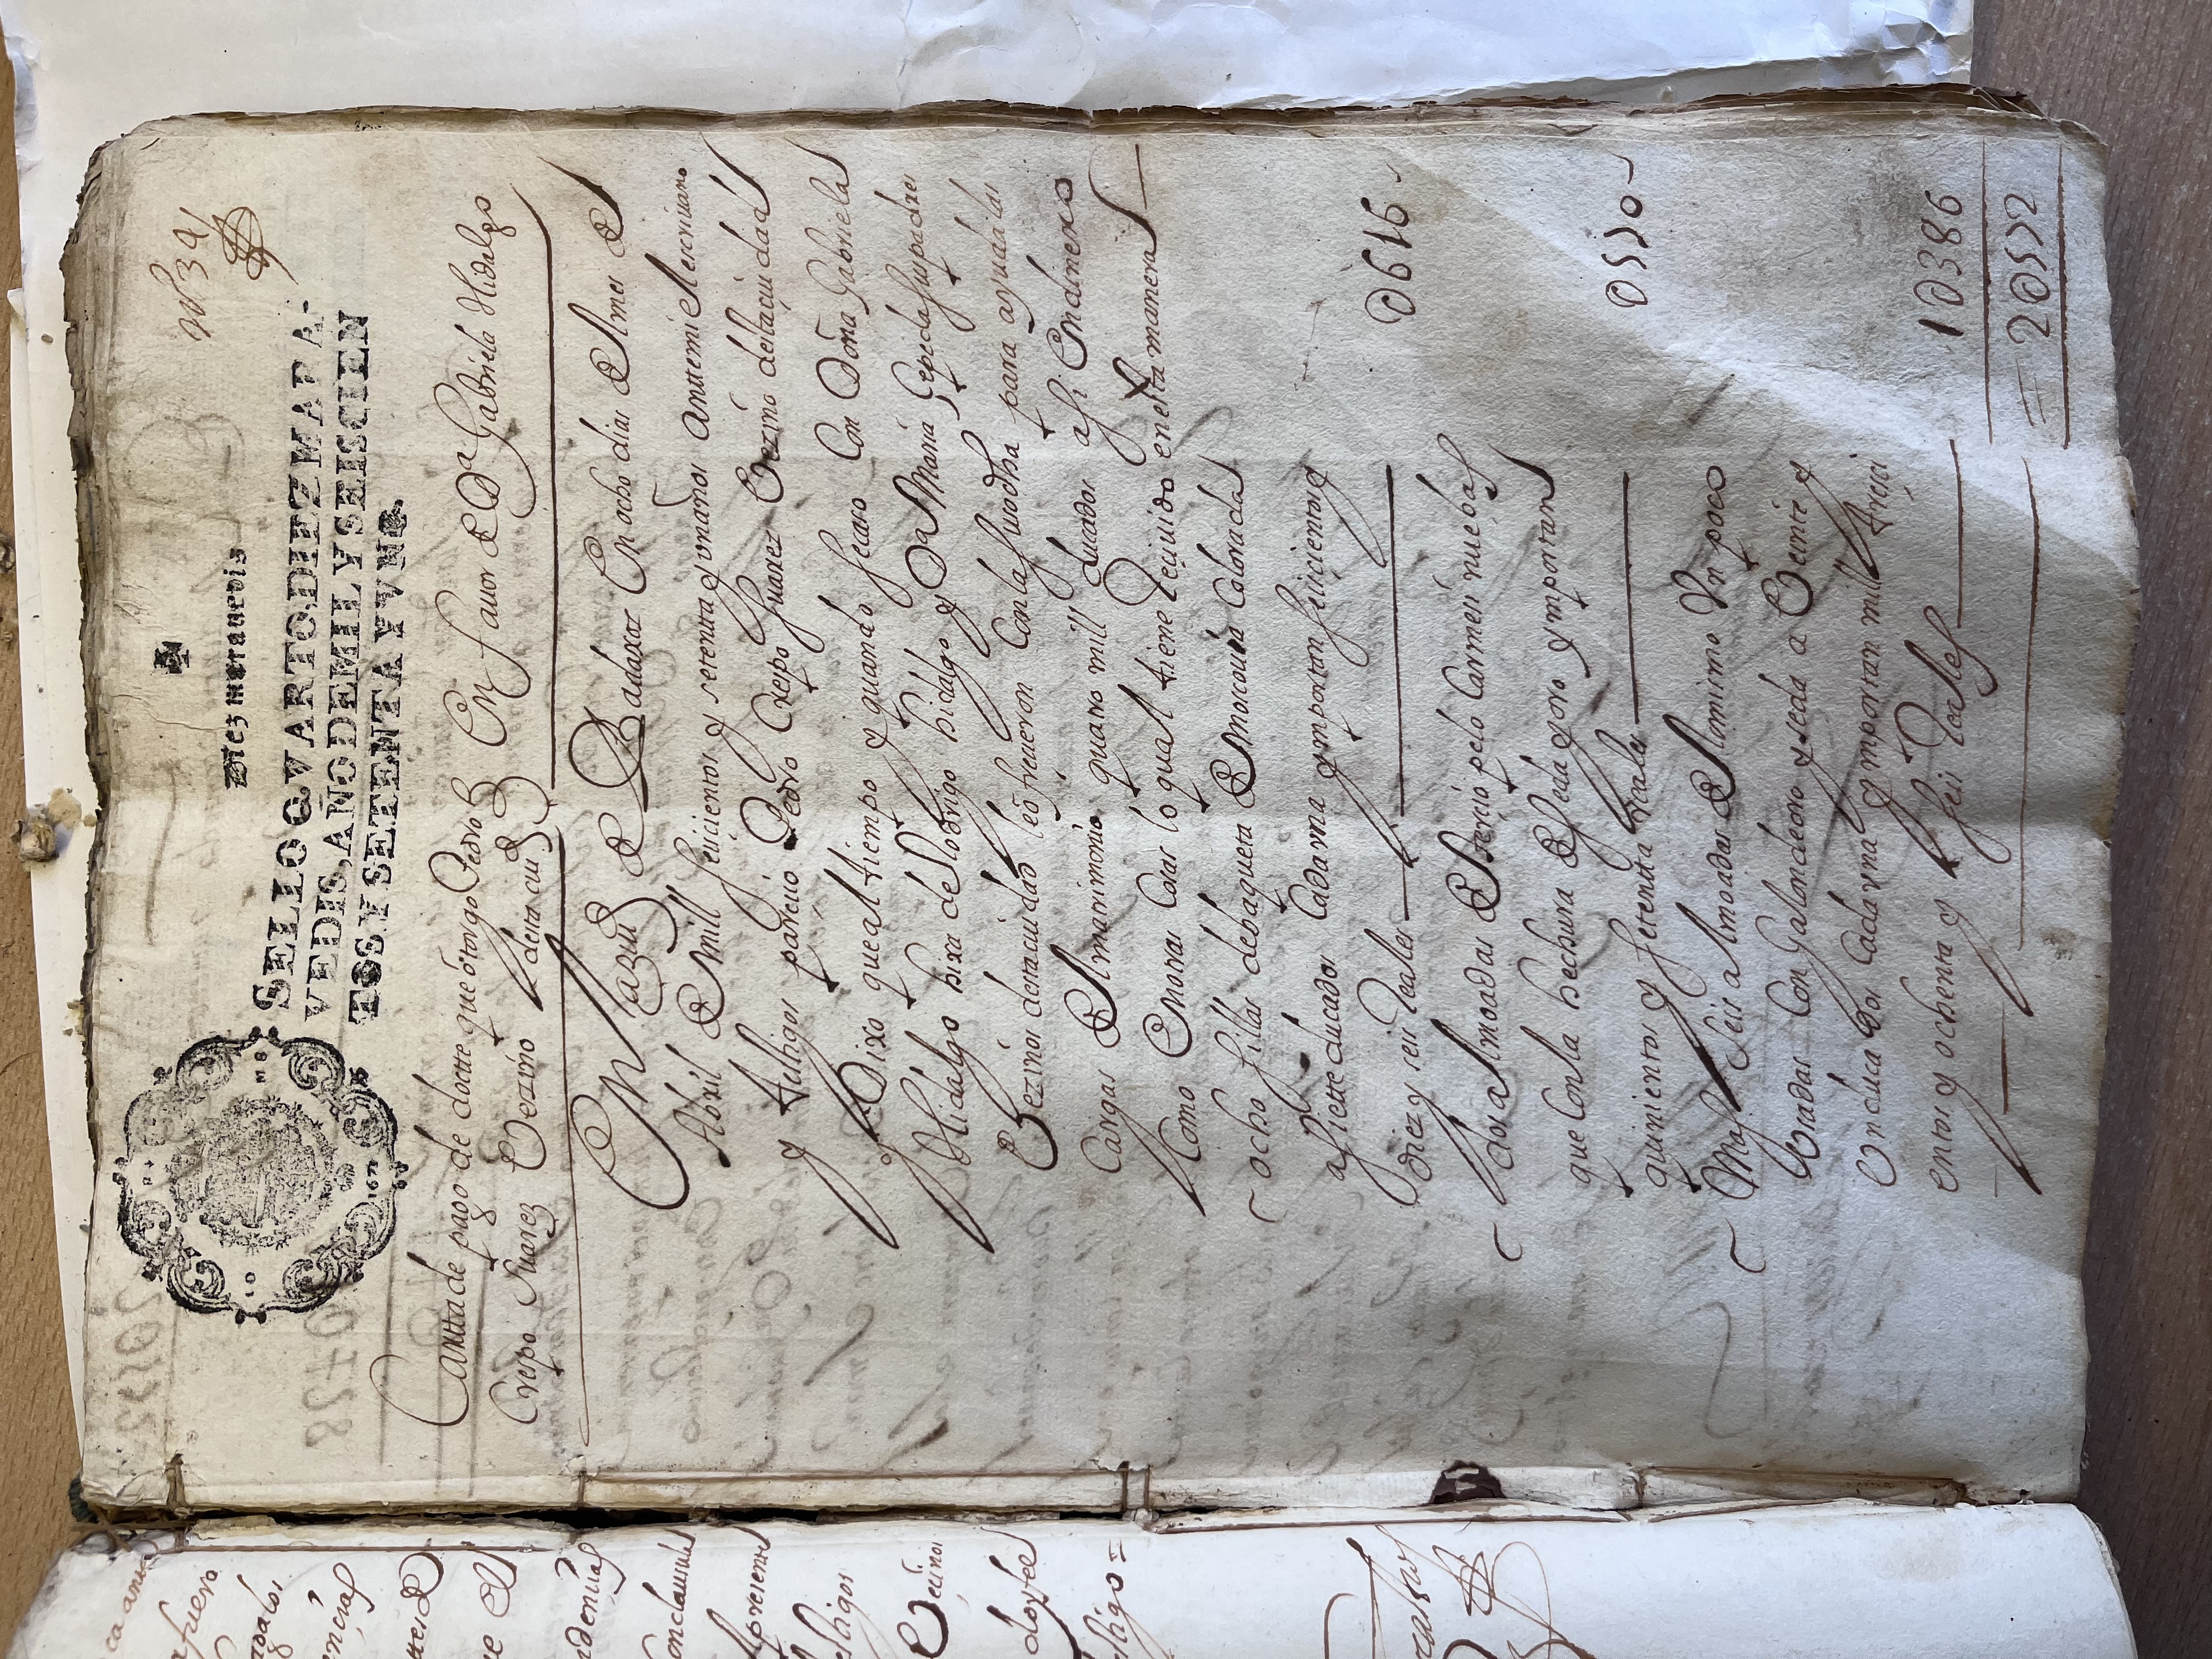 Diez maravedis
SELLO QVARTO, DIEZ MARA-
VEDIS, AÑO DE MIL Y SEISCIEN
TOS Y SETENTA Y VNO.
Cartta de pago de dotte que ótorgo Pedro En fauor de Dª Gabriela Hidalgo
Crespo Suarez Vezino desta ciud
En la ziud de Badaxoz En ocho dias del mes de
Abril de mill seicientos y setentta y un años antte mi el escriuano
y testigos pareçió Pedro Crespo Suarez Vezino desta çiudad
y Dixo que al tiempo y quando se caso Con Doña Gabriela
Hidalgo hixa de Rodrigo hidalgo y Dª Maria sus padres
Vezinos desta ciudad le ofreçieron Con la suso dha para ayuda a las
Cargas del matrimonio quatro mill ducados assi En dinero
Como En otras Cosas lo qual tiene Reçiuido en esta manera
ocho sillas de baqueta de moscouia Coloradas
a siette ducados Cada vna ymportan seiscientos y
diez y seis Reales 0616
dos almoadas de terçiopelo Carmesi nuebas
que Con la hechura de seda y oro ymportan
quinientos y setenta Reales 0550
Mas seis almoadas de lo mismo Vn poco
Vsadas Con Galon de oro y seda a Veinte y
Vn ducados Cada vna ymportan mill treçi
entos y ochenta y seis Reales 1386
2552